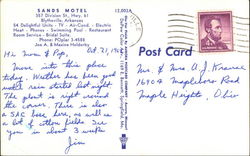 SANDS MOTEL
357 Division St., Hwy. 61
Blytheville, Arkansas
54 Delightful Units - TV - Air-Cond. - Electric
Heat - Phones - Swimming Pool - Restaurant
Room Service - Bridal Suite
Phone: POplar 3-4588
Joe A. & Maxine Holdawky
12,002A
Oct 21, 1962
Hi Mom & Pop,
Move into this place
today. Weather has been good
until rain started last night.
The plant is right around
the corner. There is also
a SAC base here, as well as
a lot of cotton fields. See
you in about 3 weeks
Jim
Post Card
Mr. & Mrs A. J. Krance
Mapleboro Road
Maple Heights, Ohio